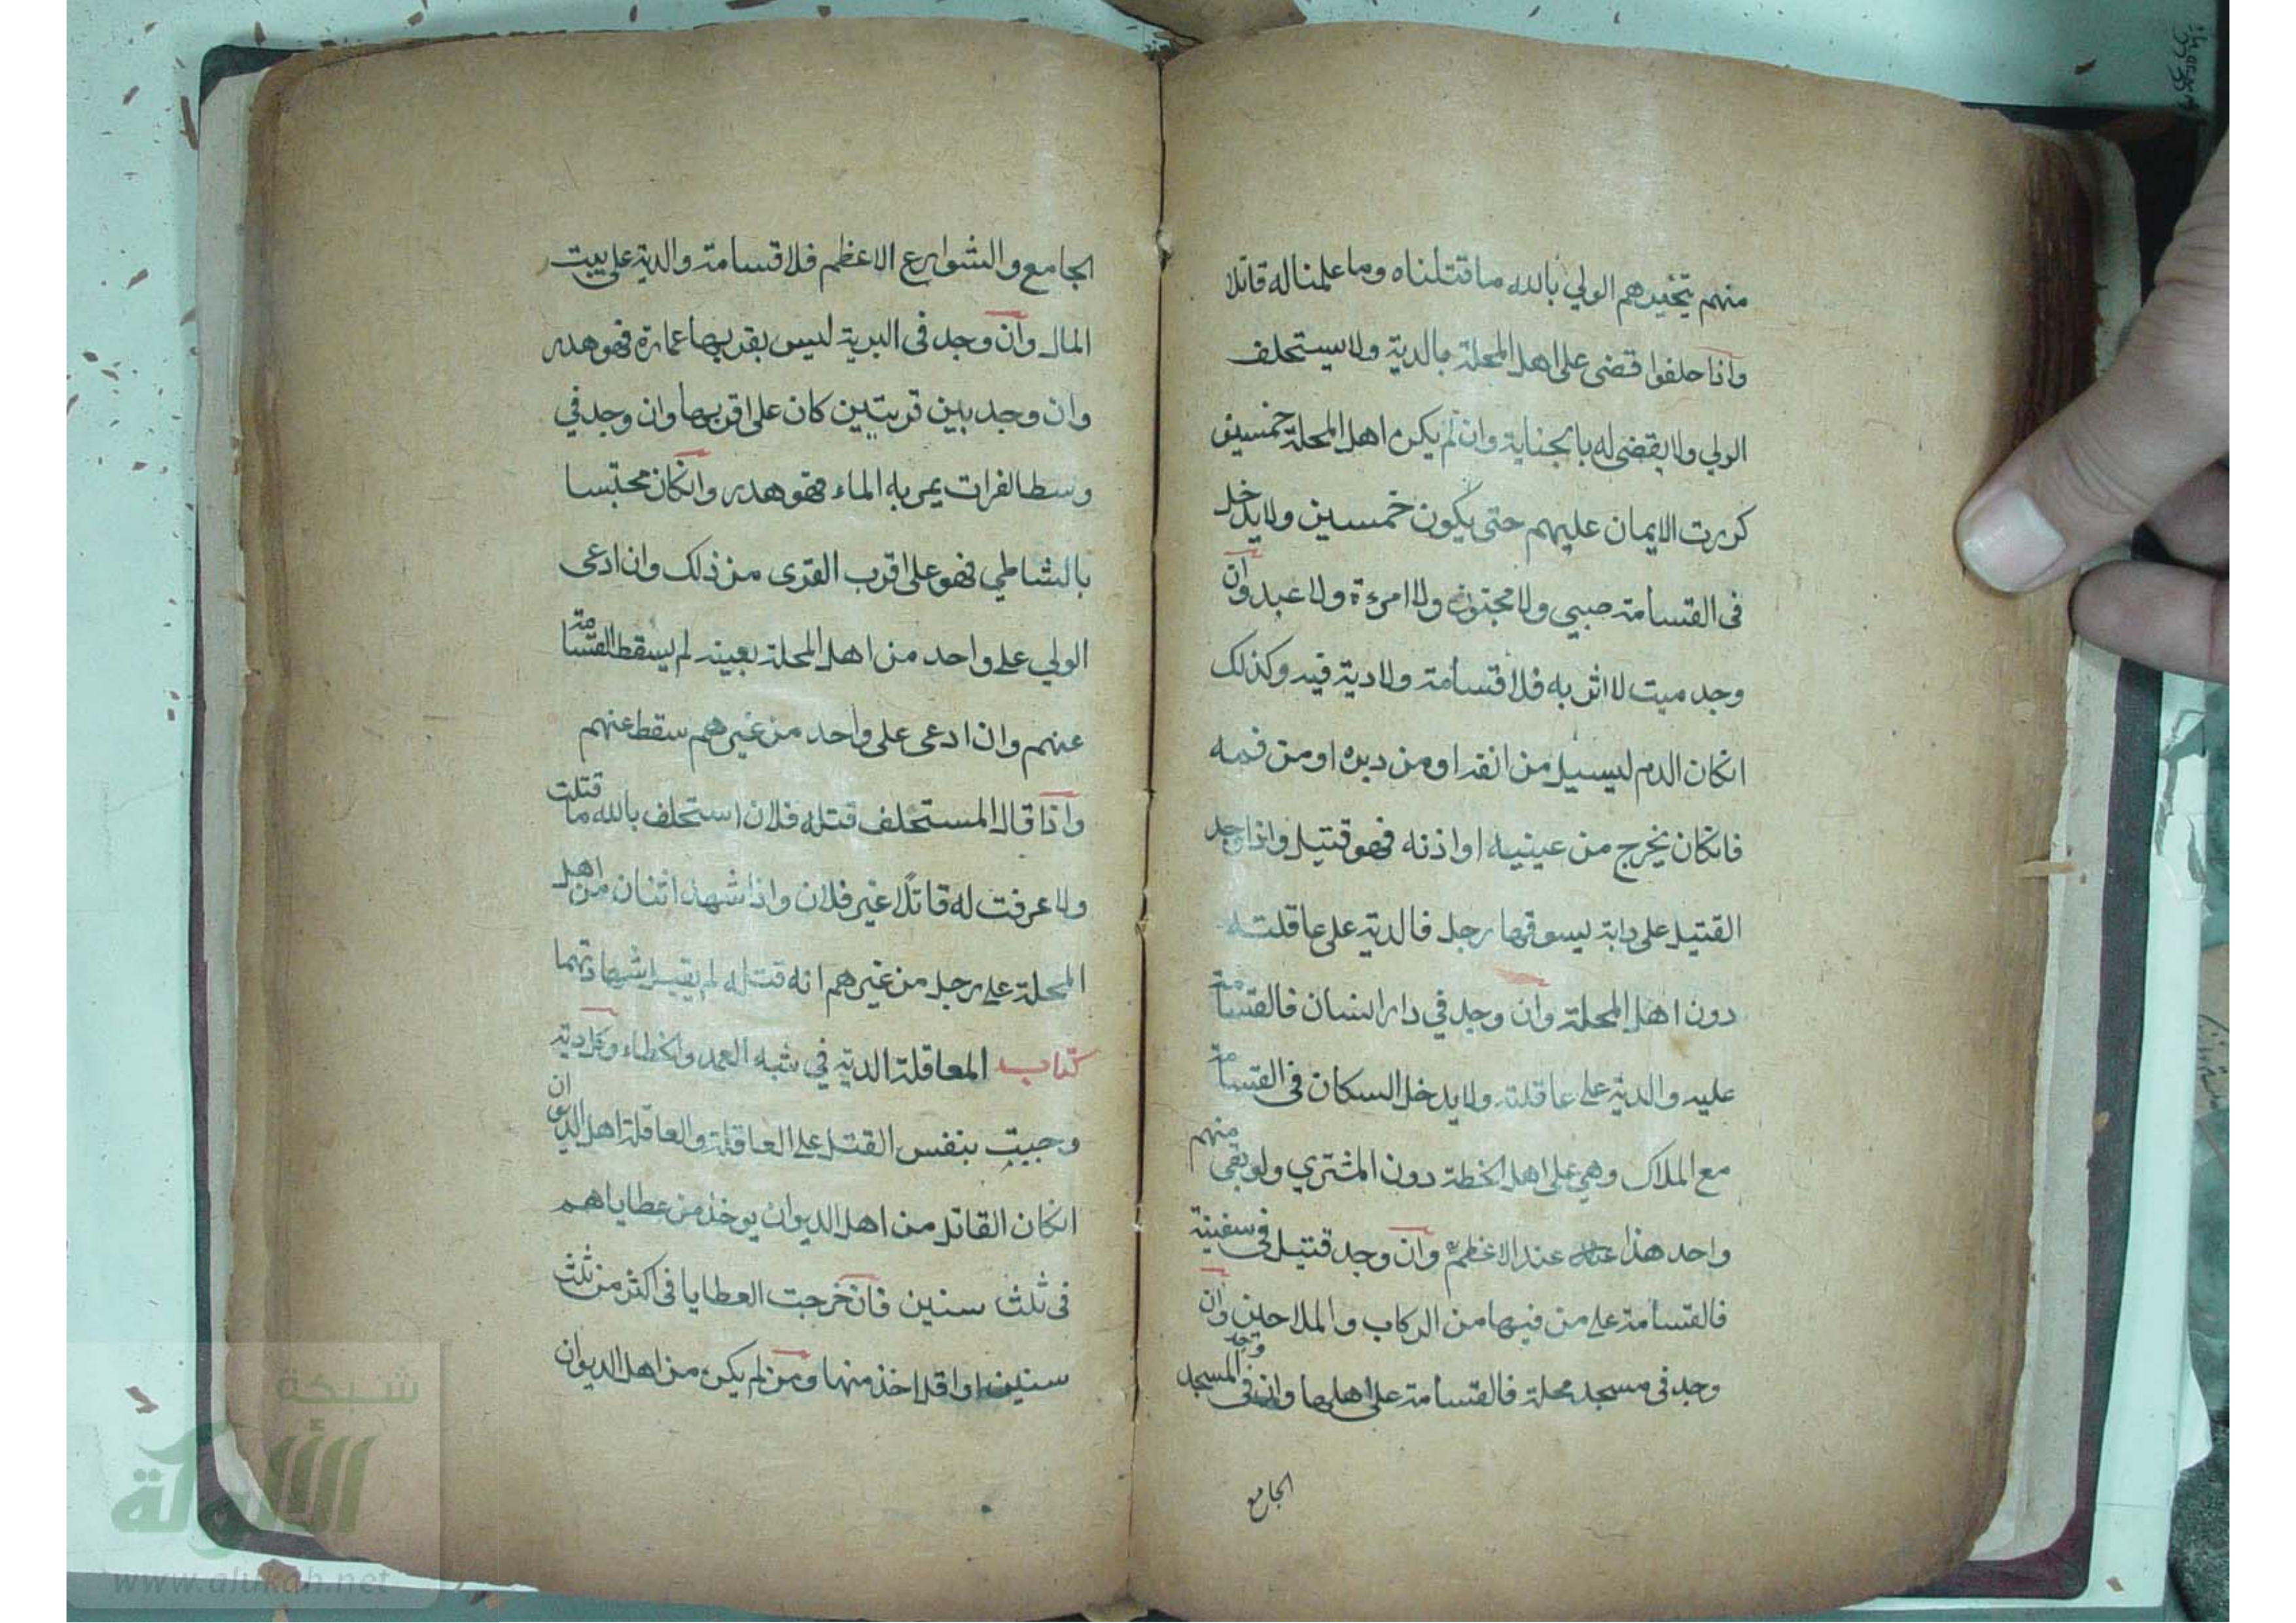 منهم يتخيرهم الولي بالله ما قتلناه وما علمنا له قاتلا
واذا حلفوا قضى على اهل المحلة بالدية ولا يستحلف
الولي ولا يقضى له بالجناية وان لم يكن اهل المحلة خمسين
كررت الايمان عليهم حتى يكون خمسين ولا يدخل
فى القسامة صبي ولا مجنون ولا امرءة ولا عبد وان
وجد ميت لا اثر به فلا قسامة ولا دية فيه وكذلك
انكان الدم ليسيل من انفه او من دبره او من فمه
فانكان يخرج من عينيه او اذنه فهو قتيل واذا وجد
القتيل على دابة يسوقها رجل فالدية على عاقلته
دون اهل المحلة وان وجد في دار انسان فالقسامة
عليه والدية على عاقلته ولا يدخل السكان فى القسامة
مع الملاك وهي على اهل الخطة دون المشتري ولو بقى منهم
واحد هذا عند الاعظم وان وجد قتيل في سفينة
فالقسامة على من فيها من الركاب والملاحين وان
وجد فى مسجد محلة فالقسامة على اهلها وان وجد فى المسجد
الجامع
الجامع والشوارع الاعظم فلا قسامة والدية على بيت
المال وان وجد فى البرية ليس بقربها عمارة فهو هدر
وان وجد بين قريتين كان على اقربها وان وجد في
وسط الفرات يمر به الماء فهو هدر وانكان محتبسا
بالشاطي فهو على اقرب القرى من ذلك وان ادعى
الولي على واحد من اهل المحلة بعينه لم يسقط القسامة
عنهم وان ادعى على واحد من غيرهم سقط عنهم
واذا قال المستحلف قتله فلان استحلف بالله ما قتلت
ولا عرفت له قاتلًا غير فلان واذا شهد اثنان من اهل
المحلة على رجل من غيرهم انه قتله لم يقبل شهادتهما
كتاب المعاقلة الدية في شبه العمد والخطاء وكل دية
وجبت بنفس القتل على العاقلة والعاقلة اهل الديوان
انكان القاتل من اهل الديوان يوخذ من عطاياهم
فى ثلث سنين فان خرجت العطايا فى اكثر من ثلث
سنين او اقل اخذ منها ومن لم يكن من اهل الديوان
شبكة
الألوكة
www.alukah.net